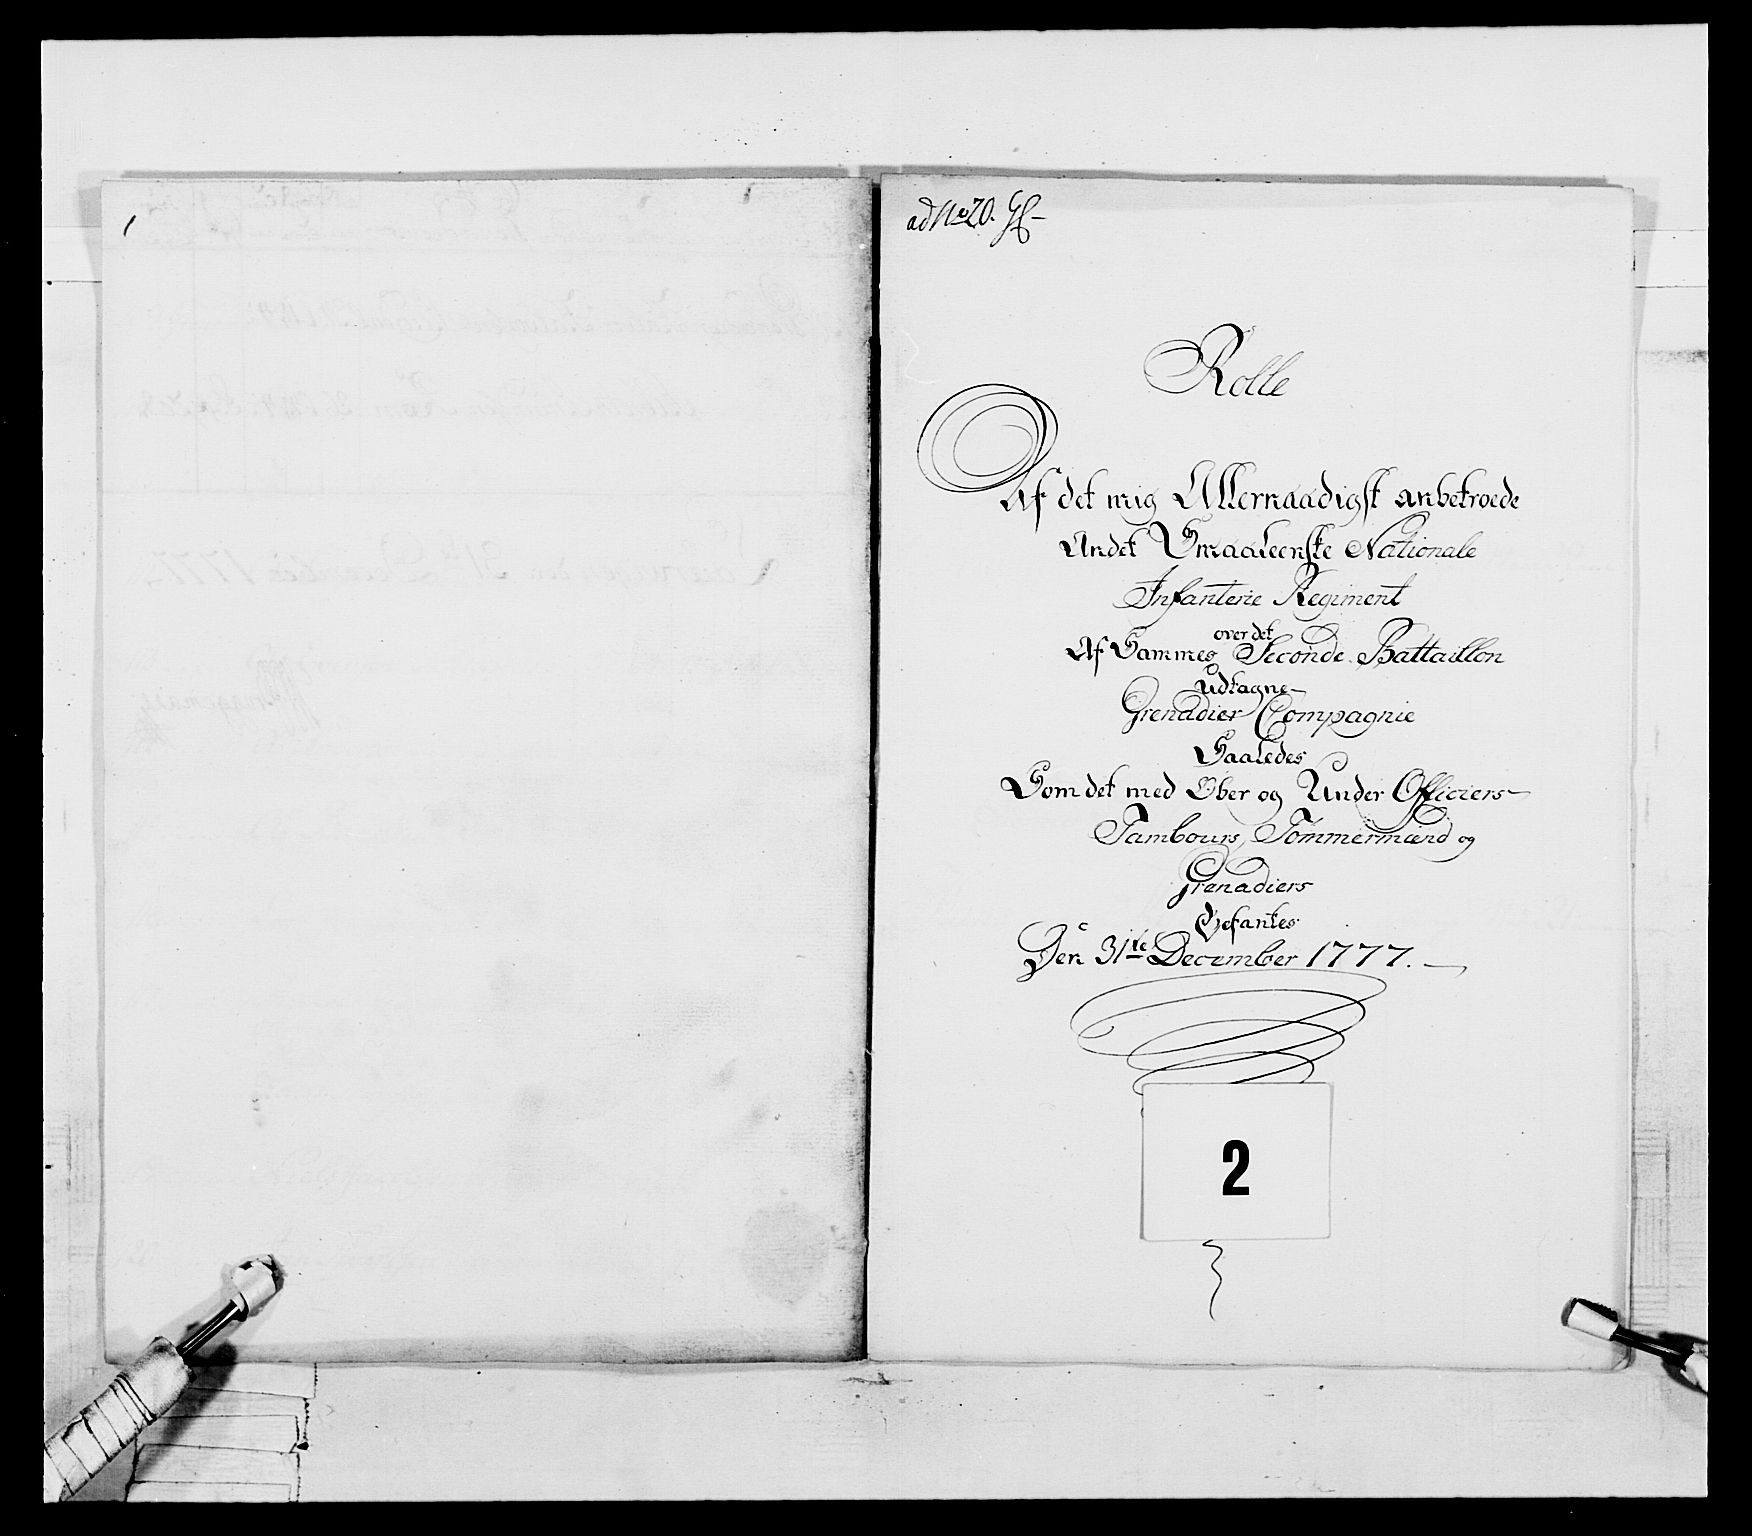 ad No 20.
Rolle
Af det mig Allernaadigst anbetroede
Andet Smaaleenske Nationale
Infanterie Regiment
over det
Af Sammes Seconde Battaillon
udtagne
Grenadier Compagnie
Saaledes
Som det med Over og Under Officiers
Tambours, Tömmermænd og
Grenadiers
Befantes
Den 31te December 1777.
2